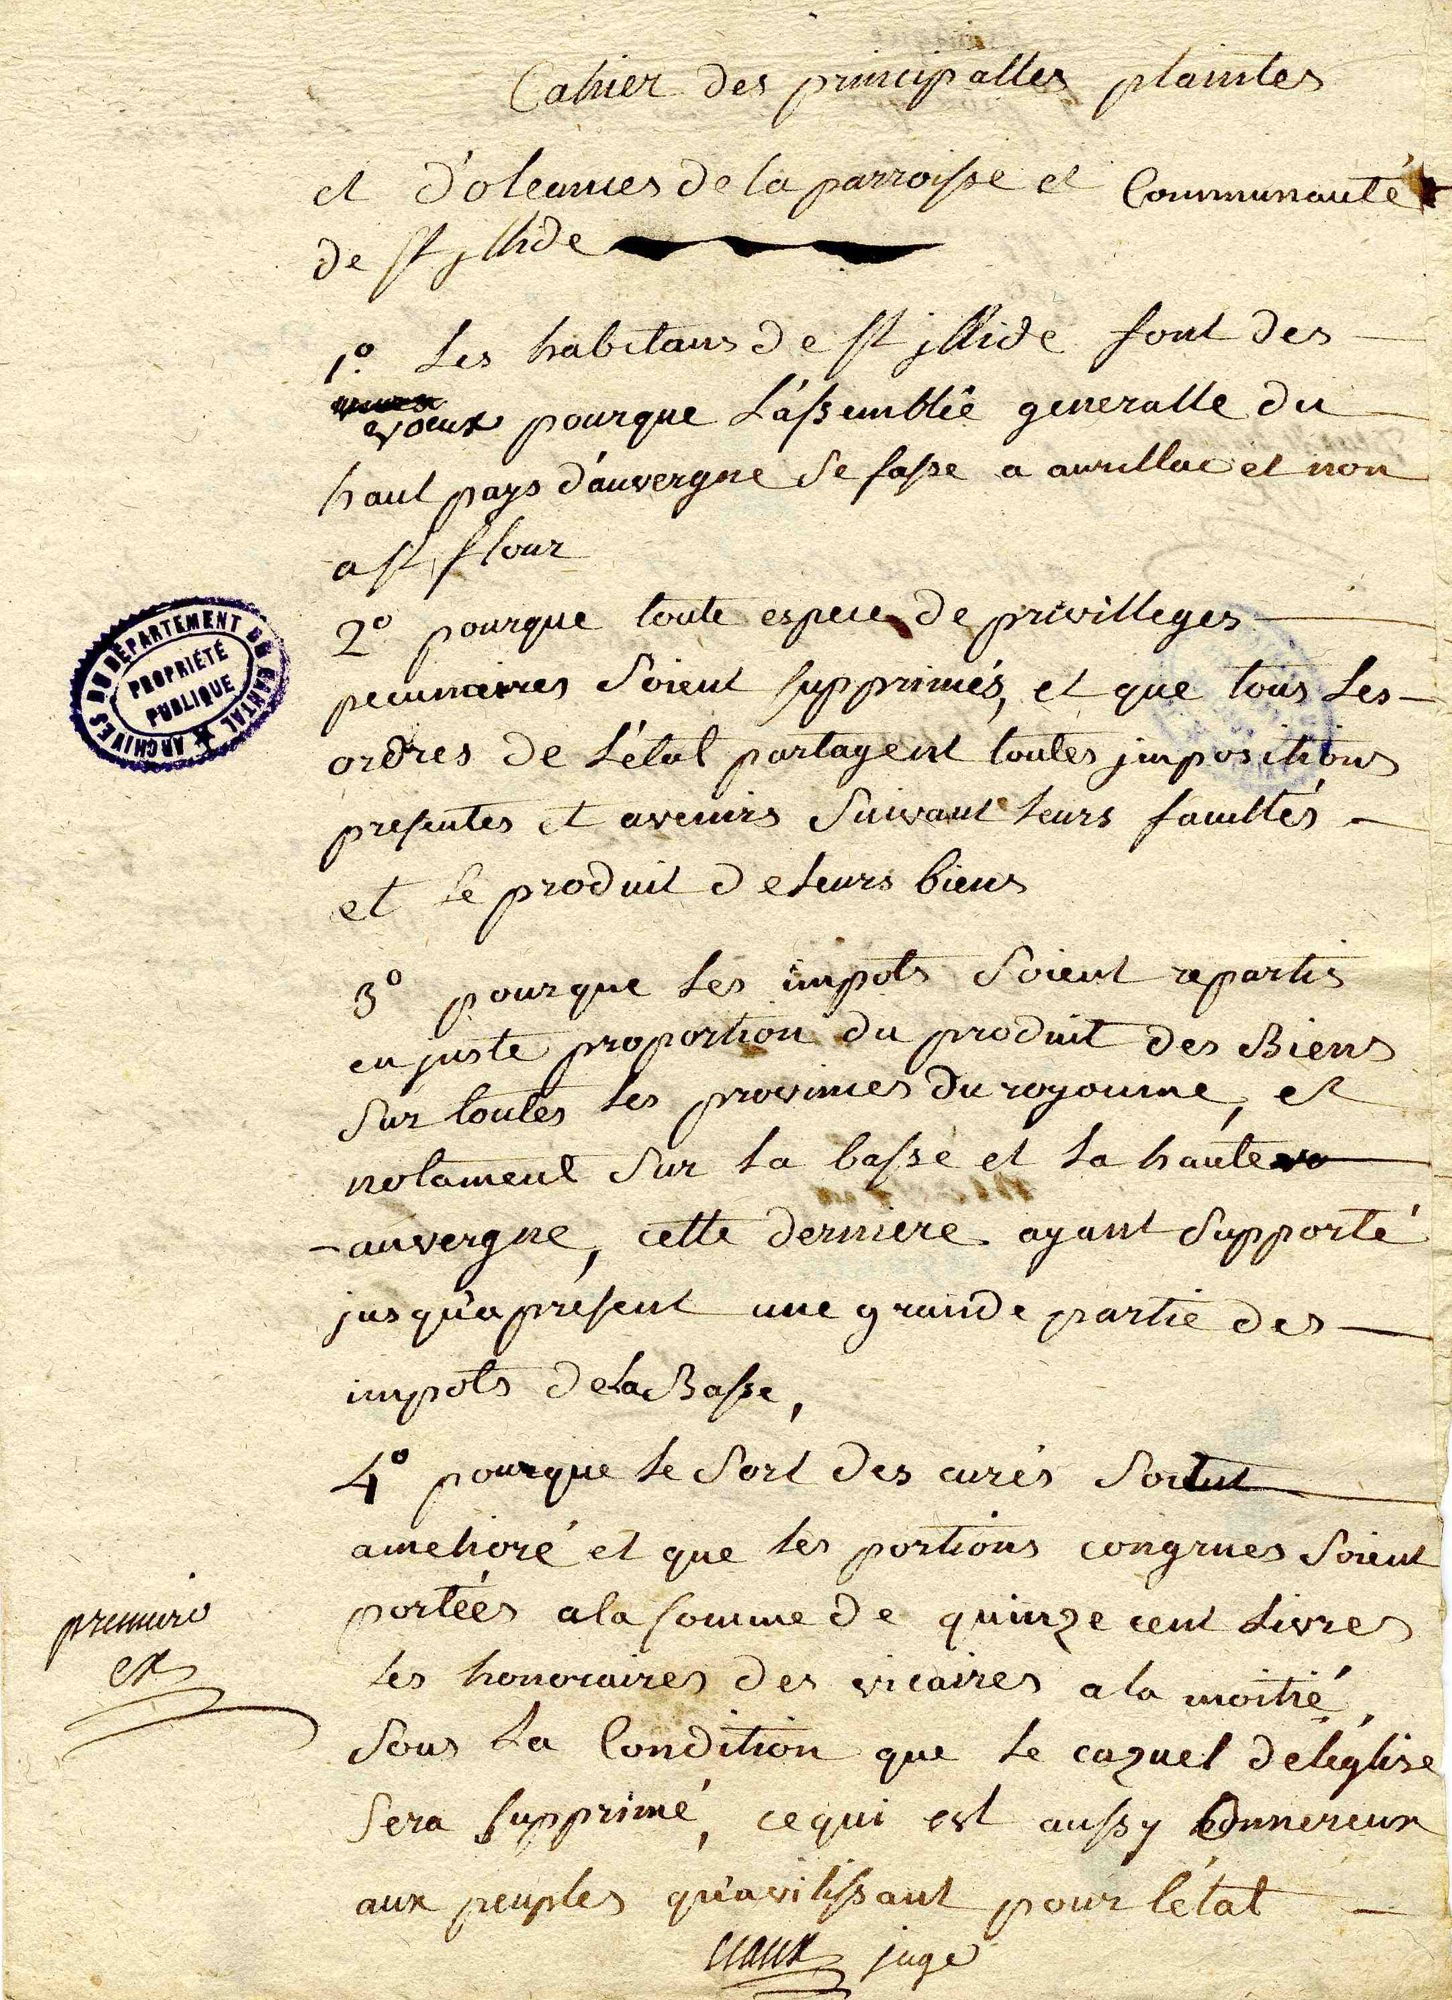 Cahier des principalles plaintes
et d'oleances de la parroisse et Communauté
de st jllide
1.º Les habitans de st jllide font des
voeux pourque L'assemblêe generalle du
haut pays d'auvergne se fasse a aurillac et non
a st flour
2º pourque toute espece de privilleges
pecuniaires soient supprimés, et que tous Les
ordres de L'état partagent toutes jmpositions
presentes et avenirs suivant leurs facultés
et le produit de leurs biens
3º pourque Les impots soient repartis
en juste proportion du produit des Biens
sur toutes les provinces du royaume, et
notament sur la basse et la haute
auvergne, cette derniere ayant supporté
jusqu'a présent une grande partie des
impots de La Basse,
4º pourque le sort des curés soit
amelioré et que les portions congrues soient
portées a la somme de quinze cent Livres
les honoraires des vicaires a la moitié,
sous La Condition que le cazuel de léglise
sera supprimé, ce qui est aussy onnereux
aux peuples qu'avilissant pour l'état
juge
premiere
ARCHIVES DU DÉPARTEMENT DU CANTAL
PROPRIÉTÉ
PUBLIQUE